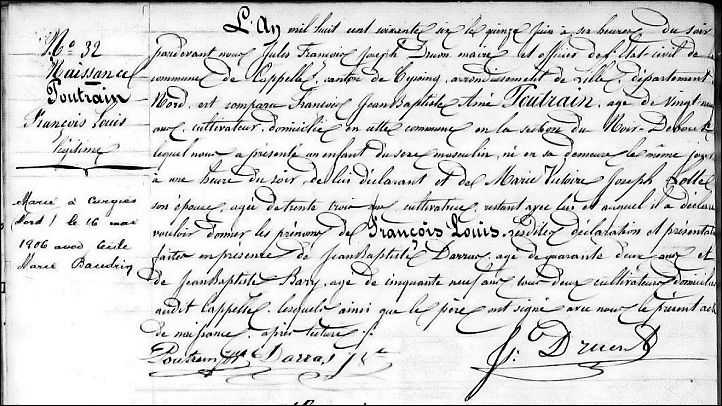 No 32
Naissance
Poutrain
François Louis
légitime
Marié à Curgies
Nord / le 16 mai
1906 avec Cécile
Marie Baudrin
L'An mil huit cent soixante six le quinze Juin à six heures du soir
pardevant nous Jules François Joseph Druon maire et officier de l'état-civil de la
commune de Cappelle, canton de Cysoing, arrondissement de Lille, département
Nord, est comparu François JeanBaptiste Aimé Poutrain, age de vingt
ans, cultivateur, domicilié en cette commune en la section du
lequel nous a présenté un enfant du sexe masculin, né en sa demeure le même jour
à une heure du soir, de lui déclarant et de Marie Victoire Joseph
son épouse, agée de trente trois ans, cultivatrice, restant avec lui et auquel il a déclaré
vouloir donner les prénoms de François Louis, lesdites déclaration et présentation
faites en présence de JeanBaptiste Darras, age de quarante deux ans et
de JeanBaptiste Bary, age de cinquante neuf ans, tous deux cultivateurs domiciliés
audit Cappelle, lesquels ainsi que le père ont signé avec nous le présent acte
de naissance, après lecture
Poutrain Darras J. Druon